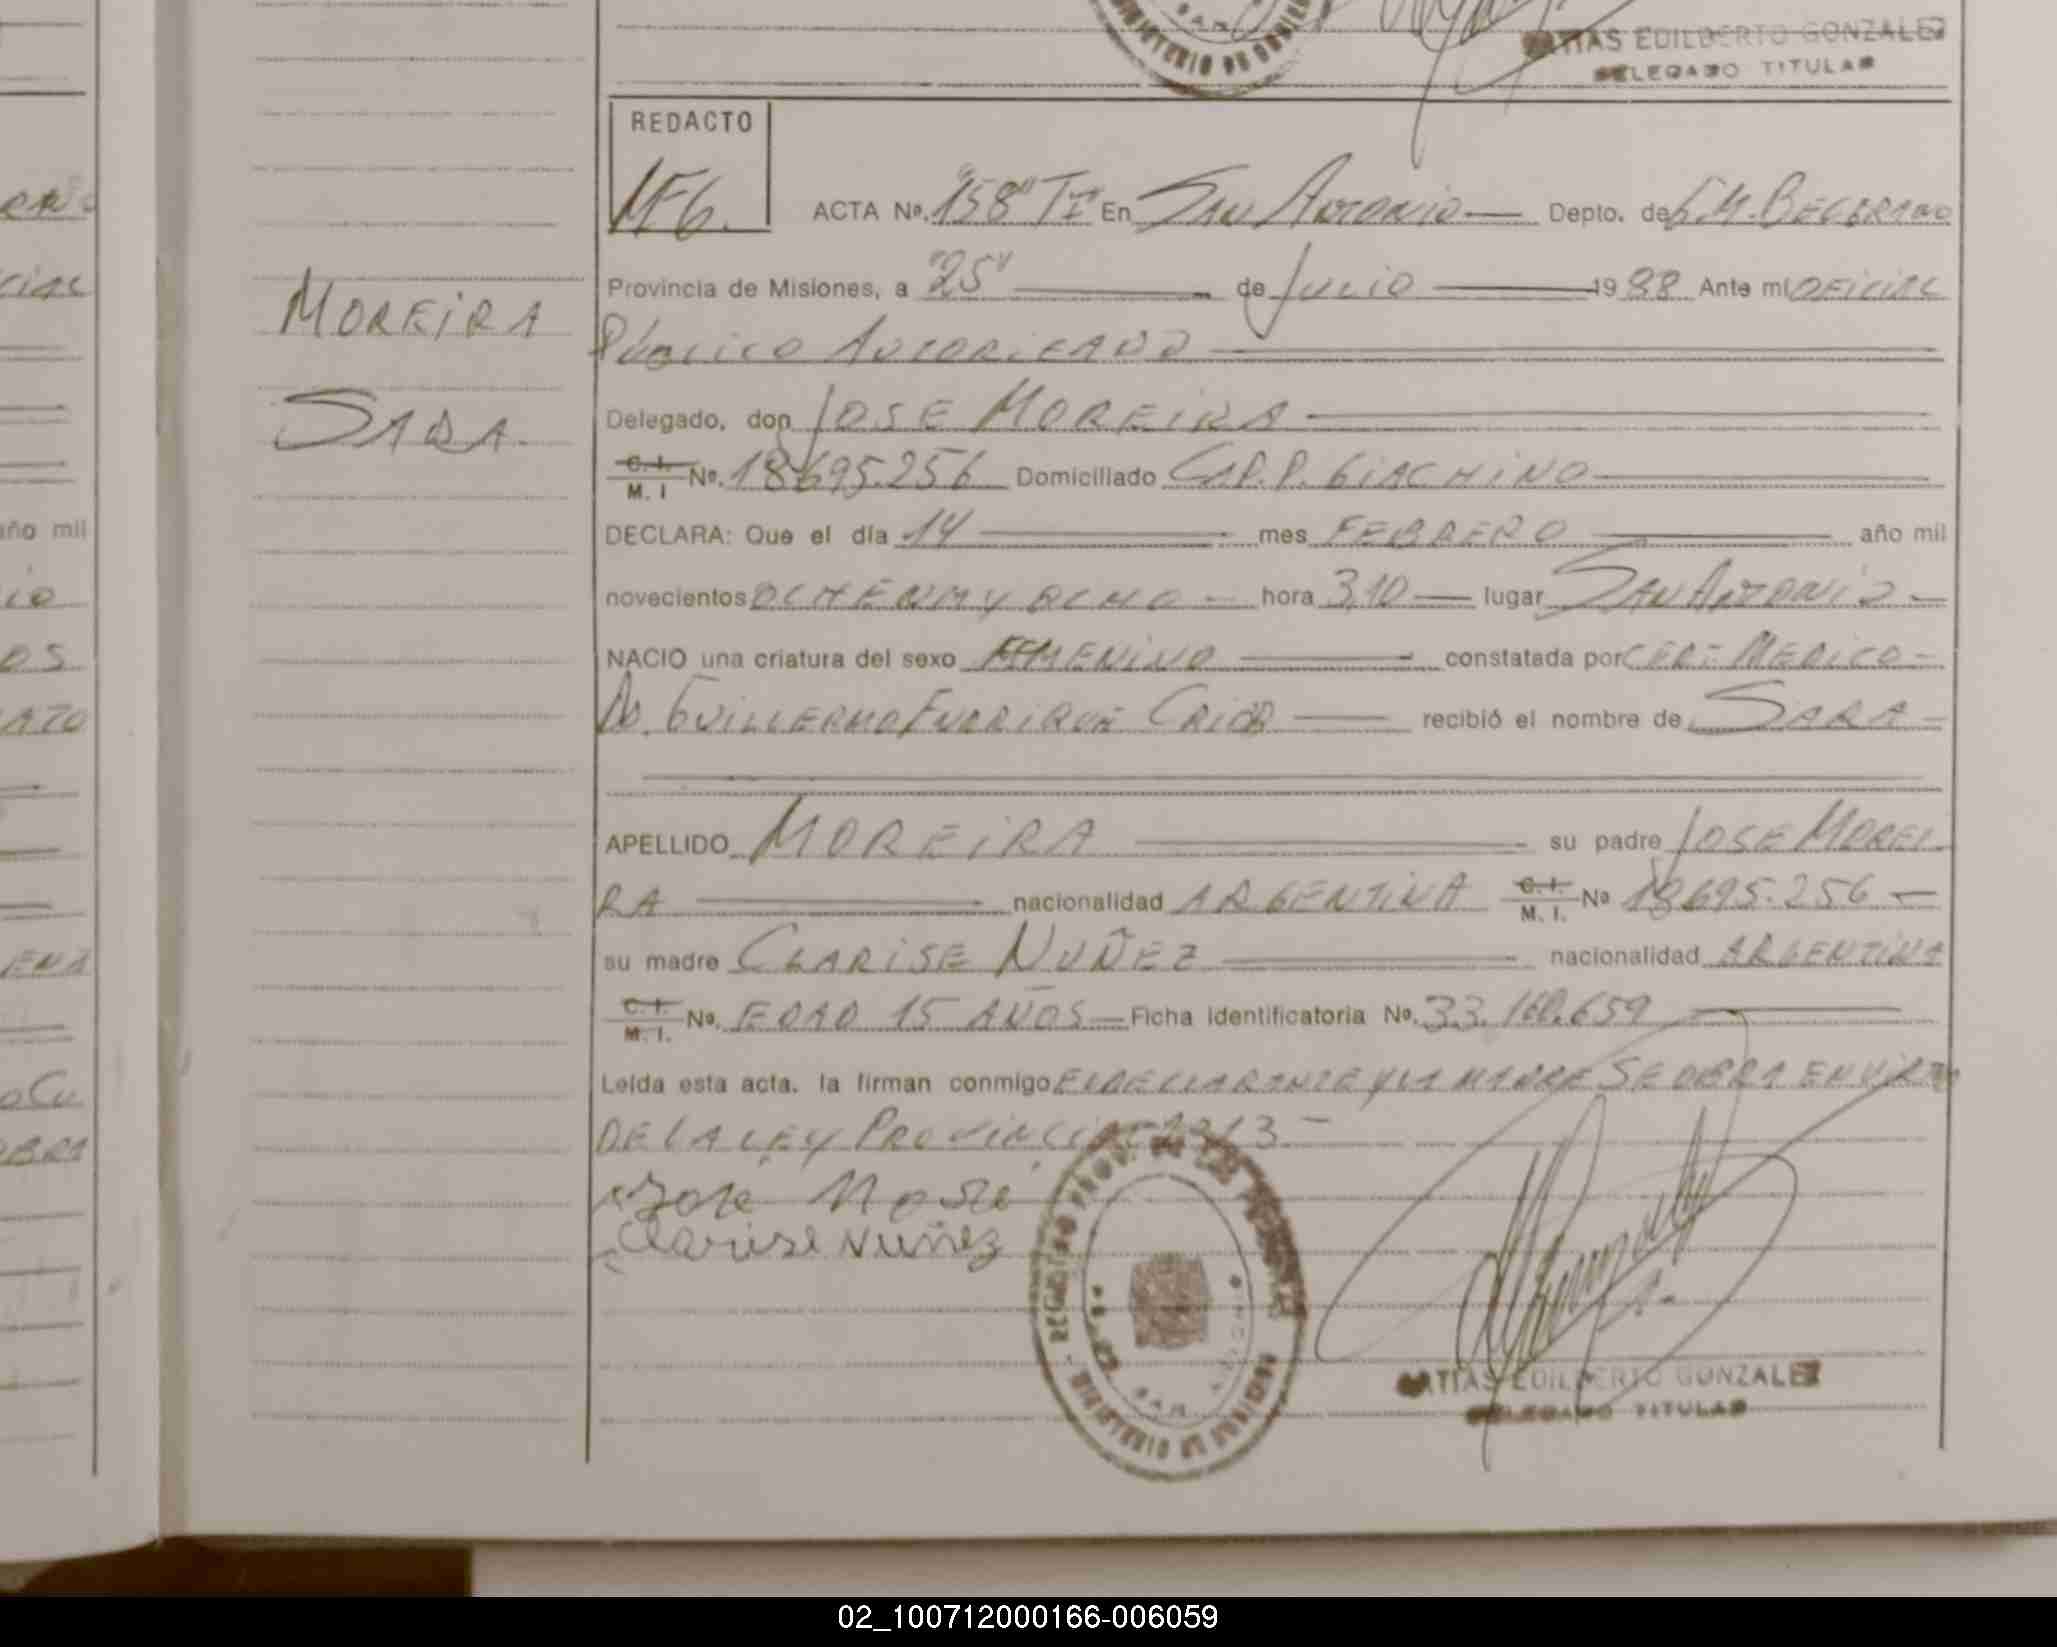 MATIAS EDILBERTO GONZALEZ
DELEGADO TITULAR
REDACTO
MEG.
ACTA Nº. "158" TI En SAN ANTONIO Depto. de G.M. BELGRANO
MOREIRA
SARA.
Provincia de Misiones, a "25" de JULIO 1988 Ante mi OFICIAL
PÚBLICO AUTORIZADO
Delegado, don JOSE MOREIRA
C. I. M. I Nº. 18.695.256 Domiciliado CAP. P. GIACHINO
DECLARA: Que el día 14 mes FEBRERO año mil
novecientos OCHENTA Y OCHO hora 3,10 lugar SAN ANTONIO
NACIO una criatura del sexo FEMENINO constatada por CERT. MEDICO
DR. GUILLERMO ENRRIQUE recibió el nombre de SARA
APELLIDO MOREIRA su padre JOSE MOREI
RA nacionalidad ARGENTINA C. I. M. I. Nº 18.695.256
su madre CLARISE NUÑEZ nacionalidad ARGENTINA
C. I. M. I. Nº. EDAD 15 AÑOS Ficha identificatoria Nº. 33.160.659
Leída esta acta, la firman conmigo EL DECLARANTE Y LA MADRE SE OBRA EN VIRTUD
DE LA LEY PROVINCIAL
José
Clarise Nuñez
REGISTRO PROV. DE LAS PERSONAS
MINISTERIO DE GOBIERNO
SAN ANTONIO
MATIAS EDILBERTO GONZALEZ
DELEGADO TITULAR
02_100712000166-006059